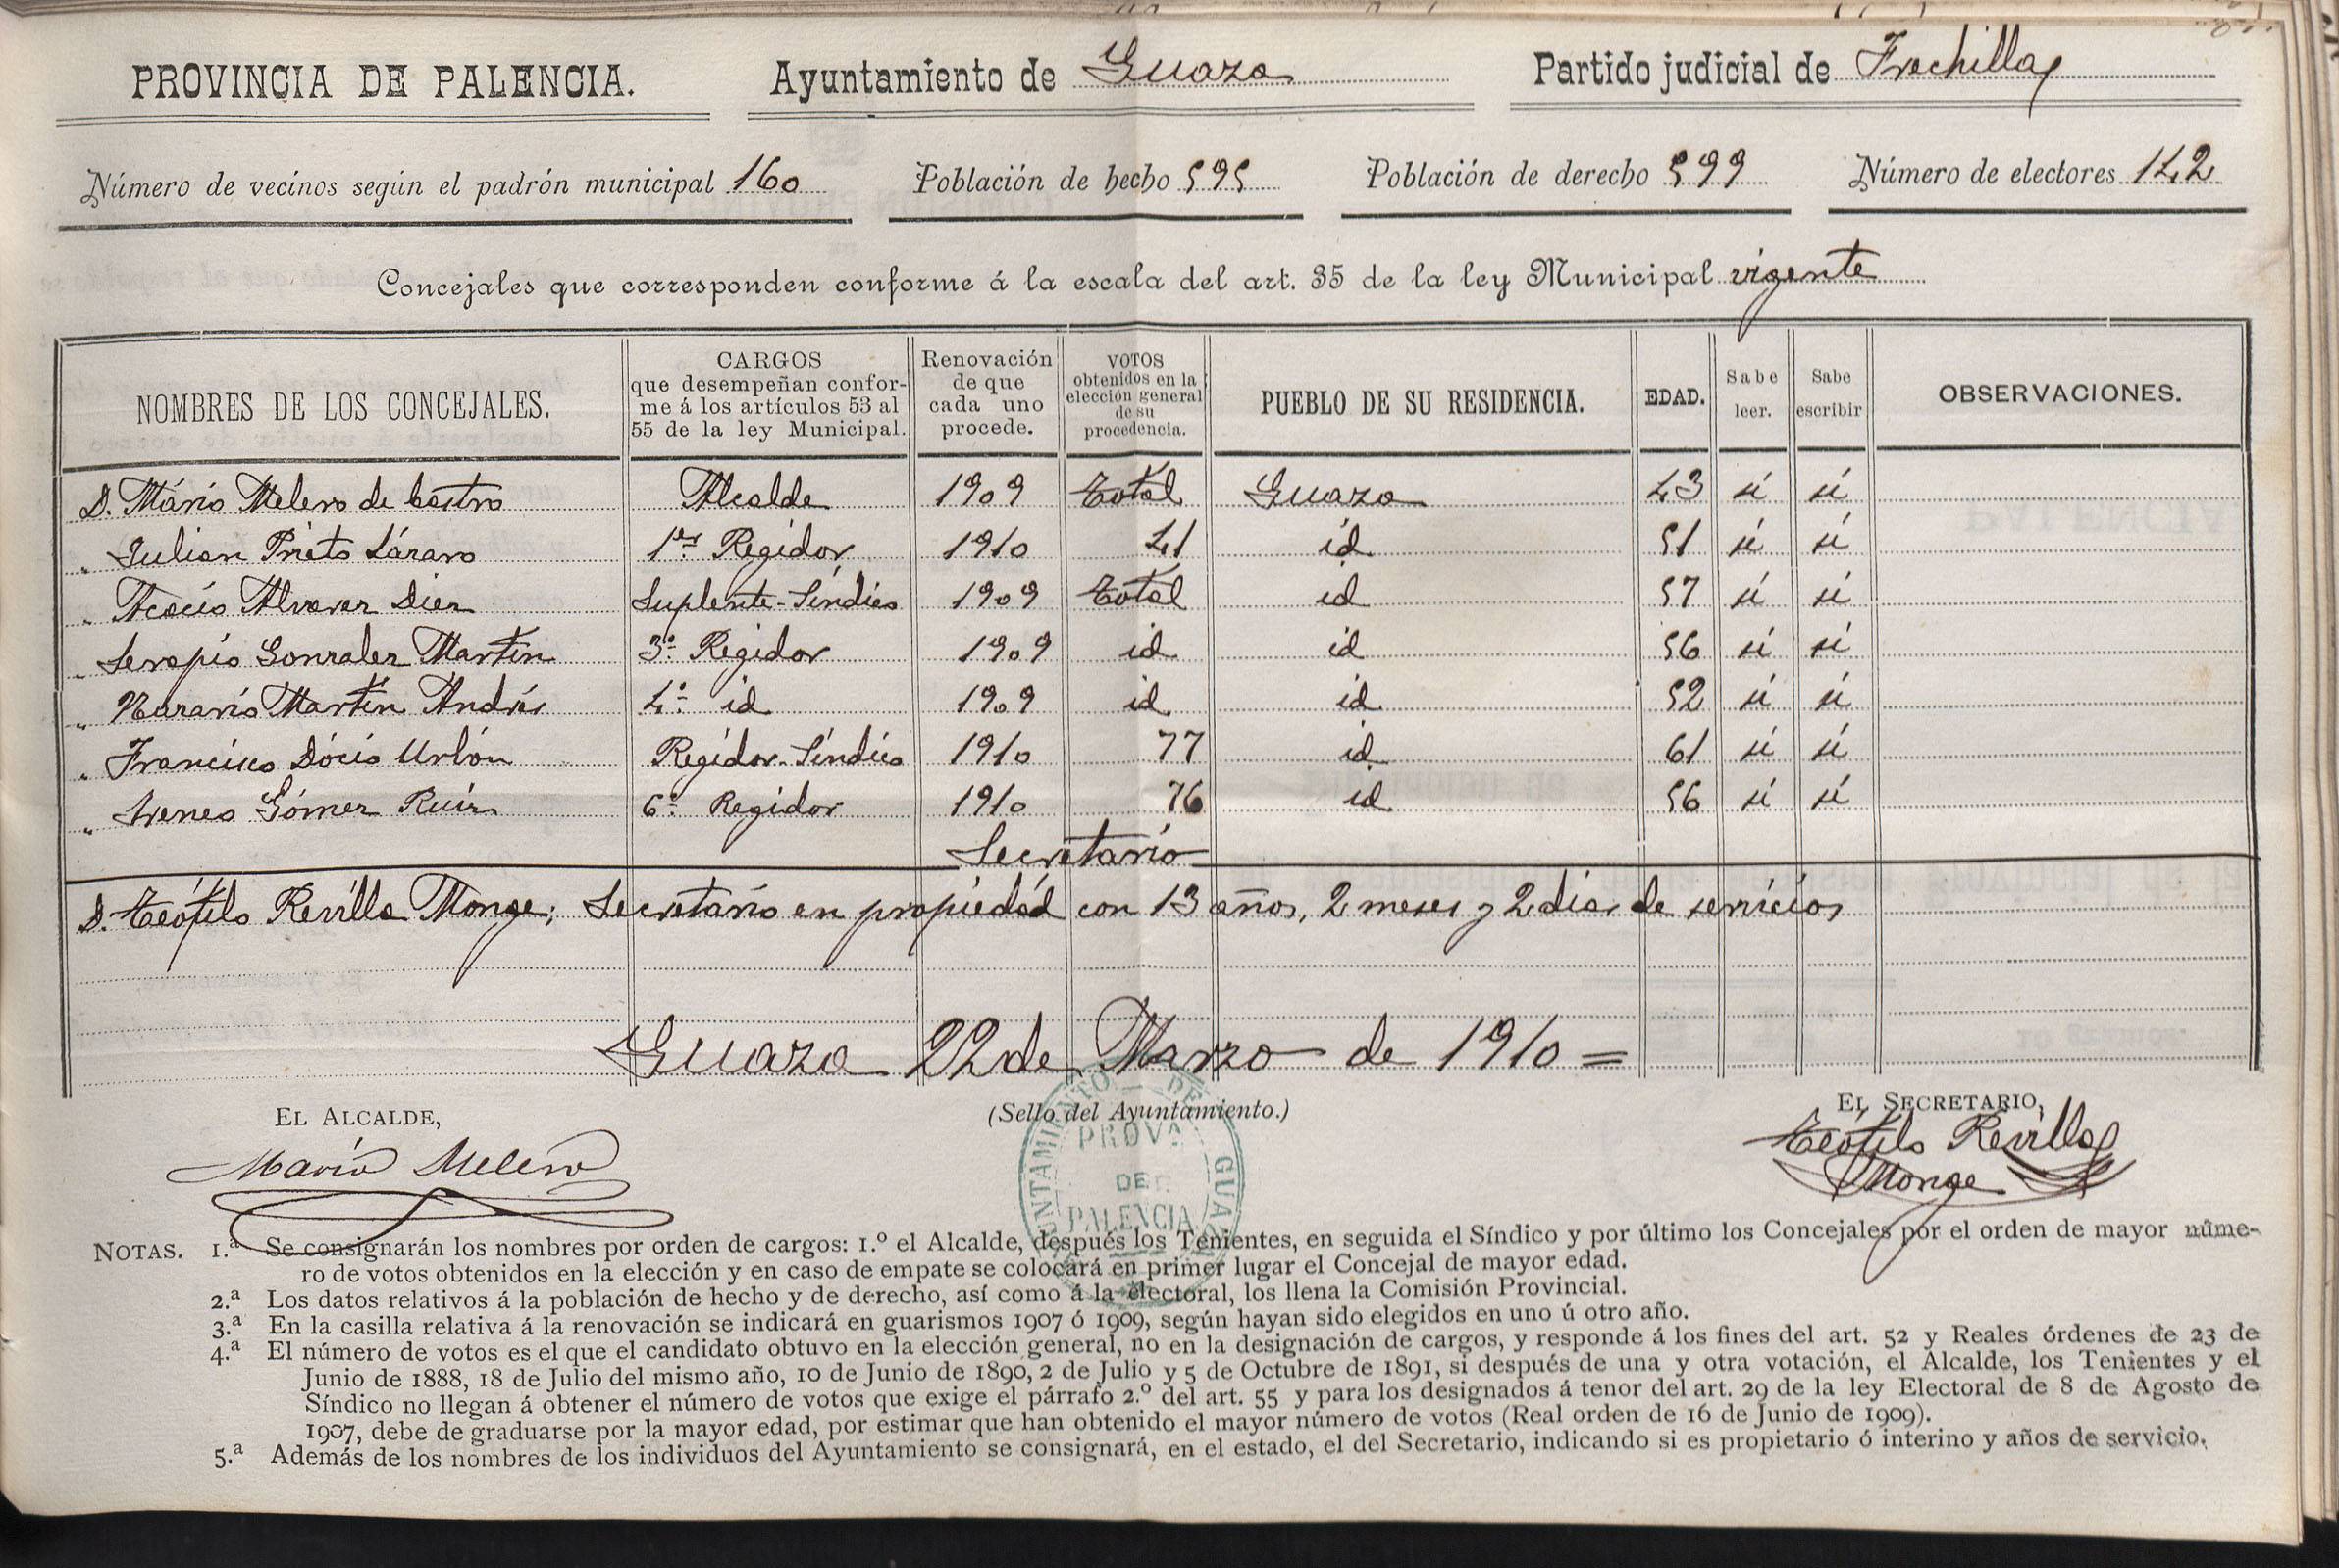 PROVINCIA DE PALENCIA. Ayuntamiento de Guaza Partido judicial de Frechilla
Número de vecinos según el padrón municipal 160 Población de hecho 595 Población de derecho 599 Número de electores 142
Concejales que corresponden conforme á la escala del art. 35 de la ley Municipal vigente
NOMBRES DE LOS CONCEJALES. CARGOS que desempeñan conforme á los artículos 53 al 55 de la ley Municipal. Renovación de que cada uno procede. VOTOS obtenidos en la elección general de su procedencia. PUEBLO DE SU RESIDENCIA. EDAD. Sabe leer. Sabe escribir OBSERVACIONES.
D. Mário Melero de Castro Alcalde 1909 total Guaza 43 sí sí
" Julian Prieto Lázaro 1er Regidor 1910 41 id 51 sí sí
" Acacio Alvarez Diez Suplente-Síndico 1909 total id 57 sí sí
" Serapio Gonzalez Martín 3º Regidor 1909 id id 56 sí sí
" Nazario Martín Andrés 4º id 1909 id id 52 sí sí
" Francisco Dócio Urbón Regidor-Síndico 1910 77 id 61 sí sí
" Ireneo Gómez Ruiz 6º Regidor 1910 76 id 56 sí sí
Secretario
D. Teófilo Revilla Monge; Secretario en propiedád con 13 años, 2 meses y 2 dias de servicios
Guaza 22 de Marzo de 1910=
EL ALCALDE, (Sello del Ayuntamiento.) EL SECRETARIO,
Mario Melero Teófilo Revilla
Monge
AYUNTAMIENTO DE GUAZA
PROVA
DE
PALENCIA
NOTAS. 1.ª Se consignarán los nombres por orden de cargos: 1.º el Alcalde, después los Tenientes, en seguida el Síndico y por último los Concejales por el orden de mayor núme-
ro de votos obtenidos en la elección y en caso de empate se colocará en primer lugar el Concejal de mayor edad.
2.ª Los datos relativos á la población de hecho y de derecho, así como á la electoral, los llena la Comisión Provincial.
3.ª En la casilla relativa á la renovación se indicará en guarismos 1907 ó 1909, según hayan sido elegidos en uno ú otro año.
4.ª El número de votos es el que el candidato obtuvo en la elección general, no en la designación de cargos, y responde á los fines del art. 52 y Reales órdenes de 23 de
Junio de 1888, 18 de Julio del mismo año, 10 de Junio de 1890, 2 de Julio y 5 de Octubre de 1891, si después de una y otra votación, el Alcalde, los Tenientes y el
Síndico no llegan á obtener el número de votos que exige el párrafo 2.º del art. 55 y para los designados á tenor del art. 29 de la ley Electoral de 8 de Agosto de
1907, debe de graduarse por la mayor edad, por estimar que han obtenido el mayor número de votos (Real orden de 16 de Junio de 1909).
5.ª Además de los nombres de los individuos del Ayuntamiento se consignará, en el estado, el del Secretario, indicando si es propietario ó interino y años de servicio.